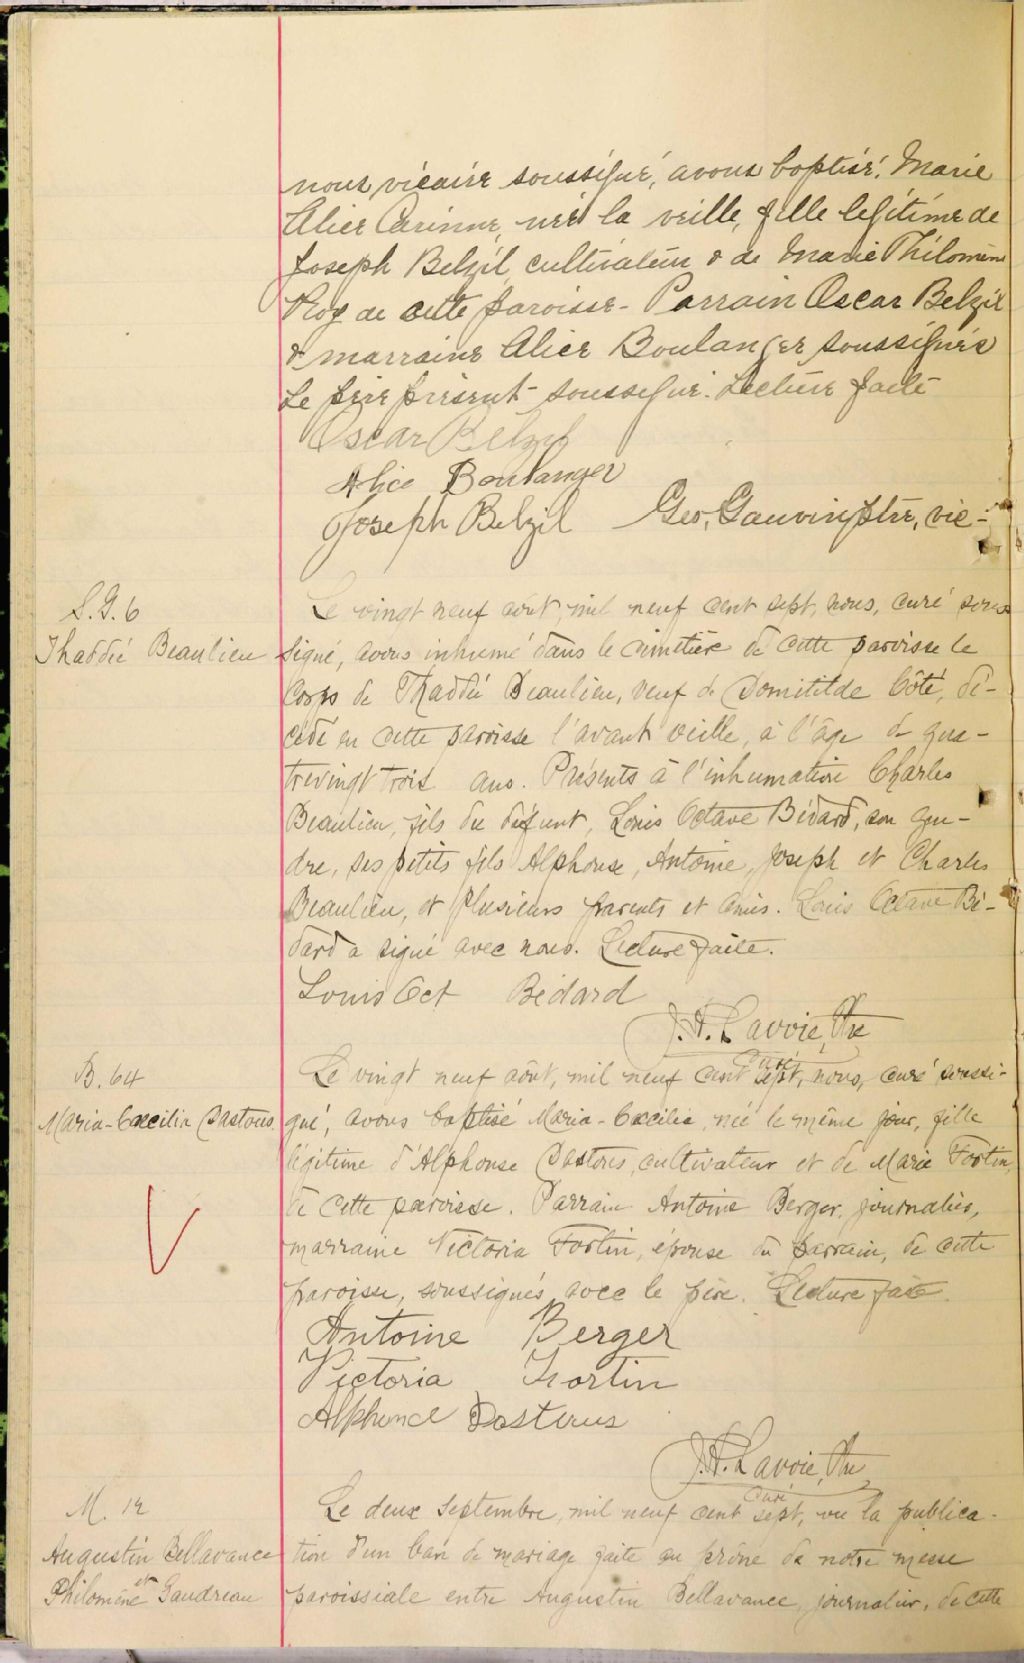 nous vicaire soussigné, avons baptisé, Marie
Alice Corinne, née la veille, fille légitime de
Joseph Belzil cultivateur & de Marie Philomène
Roy de cette paroisse - Parrain Oscar Belzil
& marraine Alice Boulanger soussignés
Le père présent soussigné. Lecture faite
Oscar Belzil
Alice Boulanger
Joseph Belzil Geo. Gauvin ptre, vic -
S.G. 6
Thaddée Beaulieu
Le vingt neuf août, mil neuf cent sept, nous, curé sous
signé, avons inhumé dans le cimetière de cette paroisse le
Corps de Thaddée Beaulieu, veuf de Domitilde Côté, dé-
cédé en cette paroisse l'avant veille, à l'âge de qua-
trevingt trois ans. Présents à l'inhumation Charles
Beaulieu, fils du défunt, Louis Octave Bédard, son gen-
dre, ses petits fils Alphonse, Antoine, Joseph et Charles
Beaulieu, et plusieurs parents et amis. Louis Octave Bé-
dard a signé avec nous. Lecture faite.
Louis Oct Bédard
J.A. Lavoie, Ptre
Curé
B. 64
Maria-Caecilia Dastous
Le vingt neuf août, mil neuf cent sept, nous, curé soussi-
gné, avons baptisé Maria-Caecilia, née le même jour, fille
légitime d'Alphonse Dastous, cultivateur et de Marie Fortin,
de cette paroisse. Parrain Antoine Berger, journalier,
marraine Victoria Fortin, épouse du parrain, de cette
paroisse, soussignés avec le père. Lecture faite.
Antoine Berger
Victoria Fortin
Alphonce Dasterus
J.A. Lavoie, Ptre
Curé
M. 12
Augustin Bellavance
et
Philomène Gaudreau
Le deux Septembre, mil neuf cent sept, vu la publica-
tion d'un ban de mariage faite au prône de notre messe
paroissiale entre Augustin Bellavance, journalier, de cette